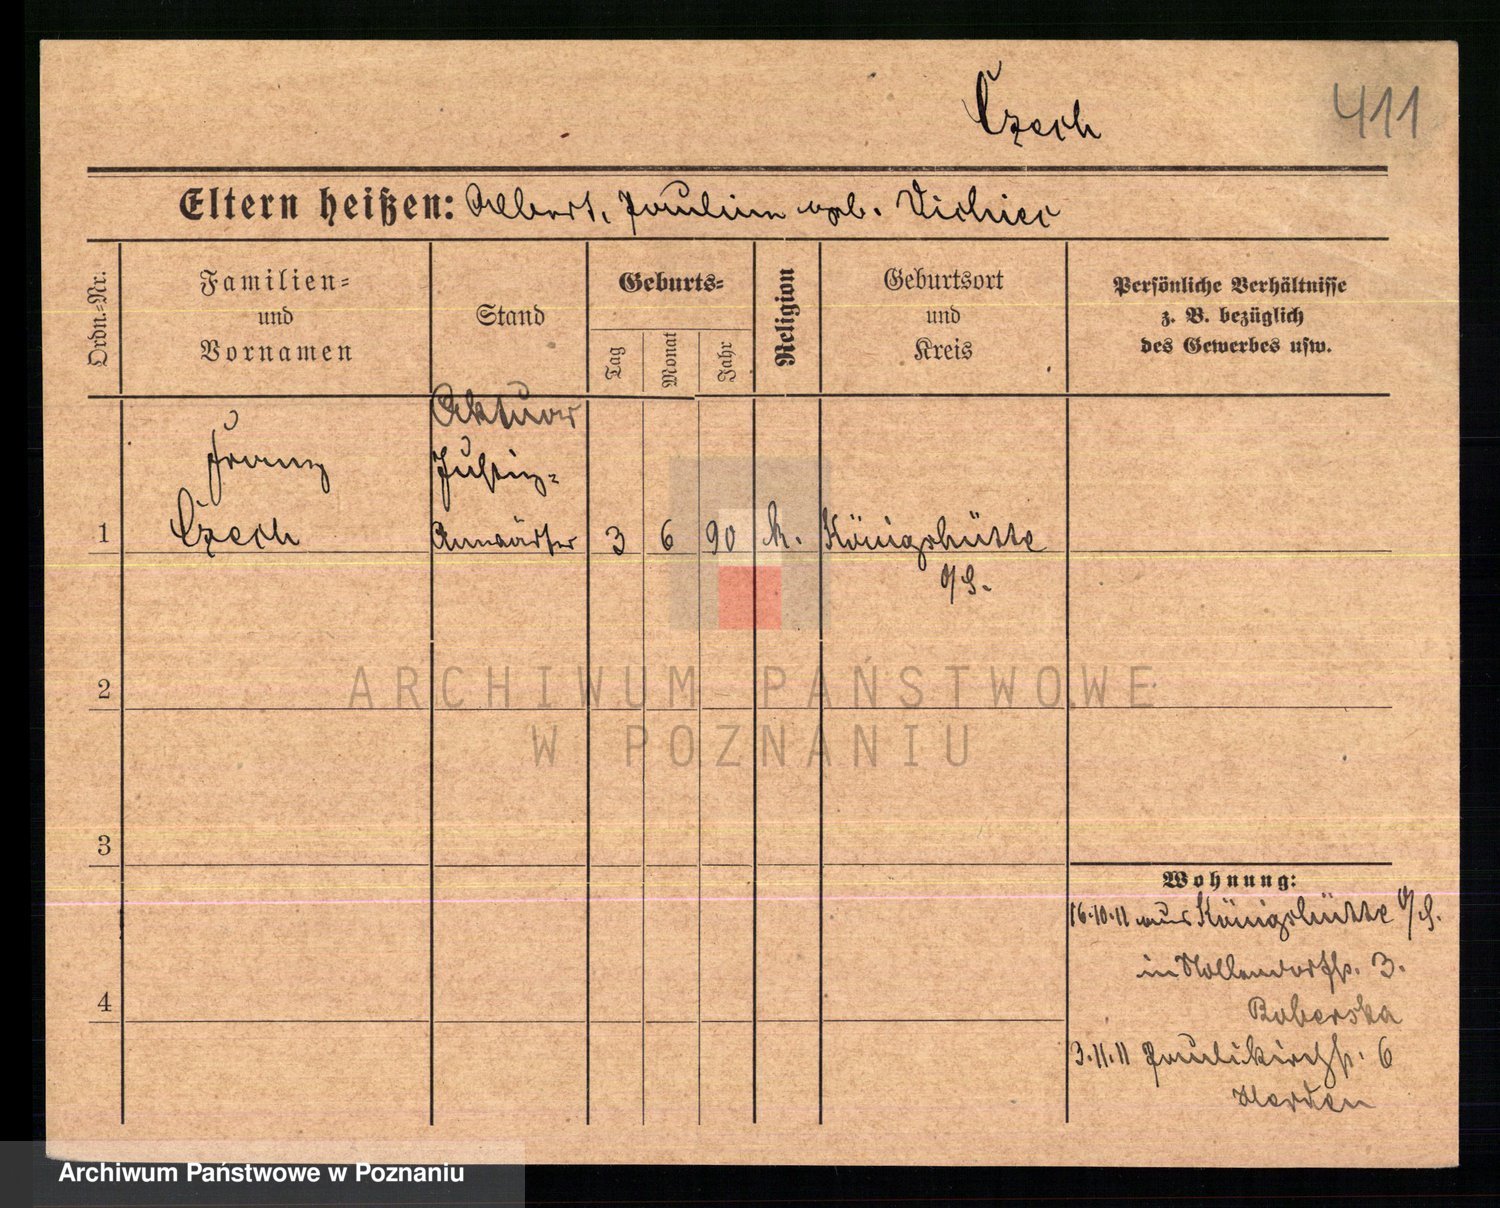 Czech
411
Eltern heißen: Albert, Paulina geb.
Ordn.-Nr.
Familien-
und
Vornamen
Stand
Geburts-
Tag
Monat
Jahr
Religion
Geburtsort
und
Kreis
Persönliche Verhältnisse
z. B. bezüglich
des Gewerbes usw.
Aktuar
Franz
Justiz-
1 Czech Anwärter 3 6 90 k. Königshütte
O/S.
ARCHIWUM PAŃSTWOWE
W POZNANIU
2
3
4
Wohnung:
16.10.11 aus Königshütte O/S.
in Nollendorfstr. 3.
Boberska
3.11.11 Paulikirchstr. 6
Archiwum Państwowe w Poznaniu